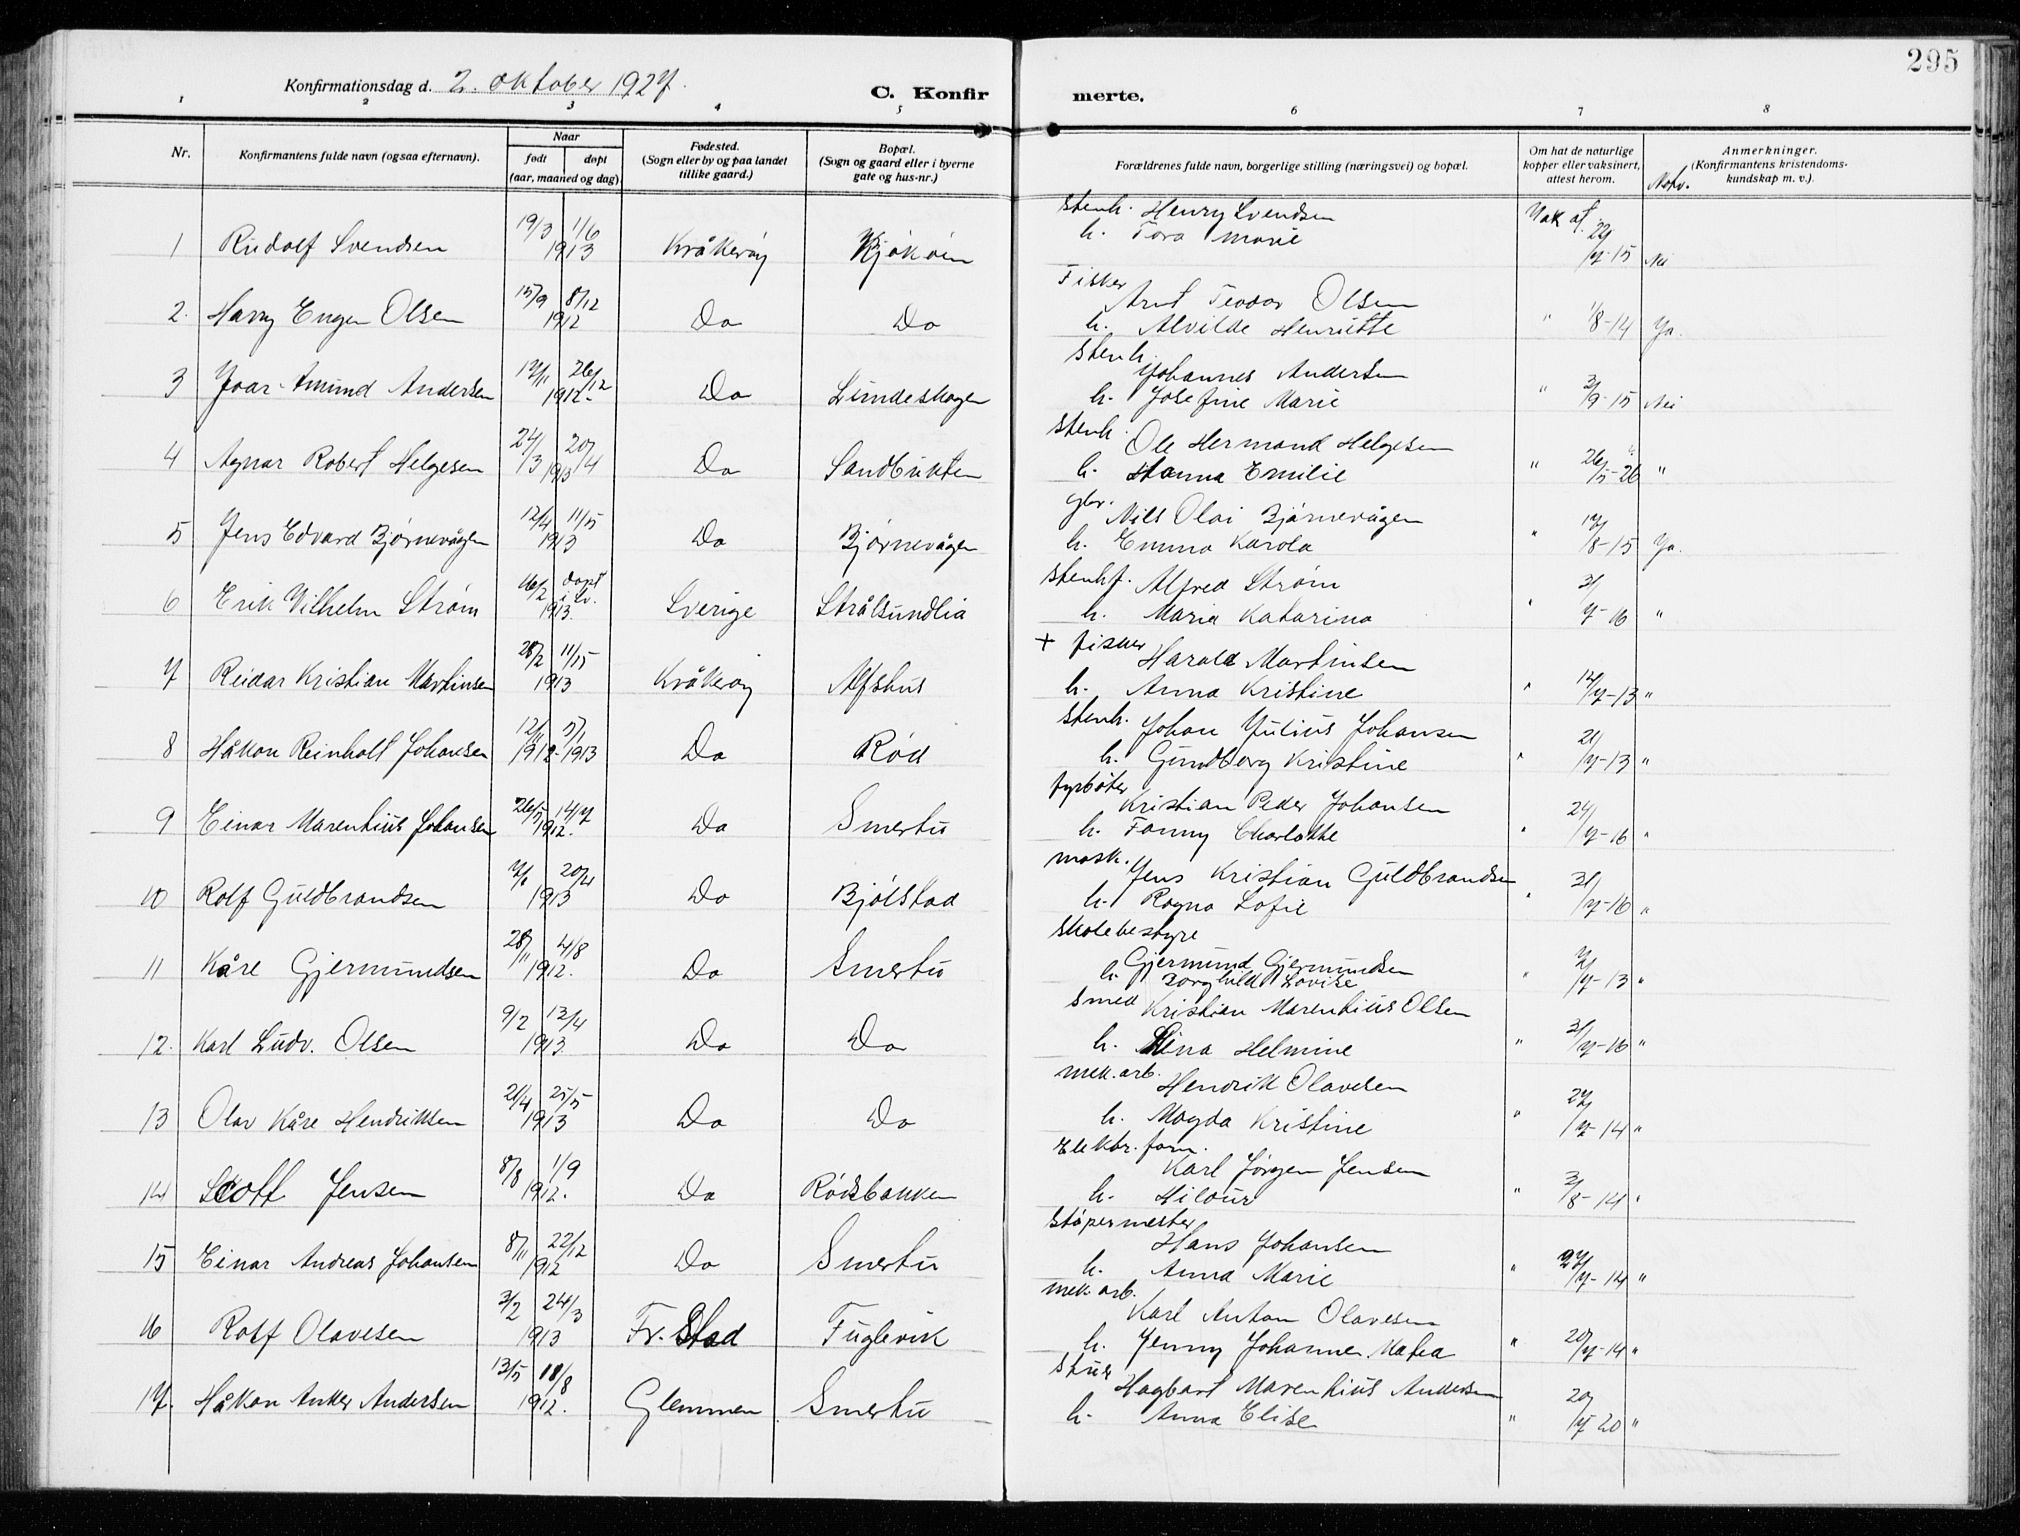 295
Konfirmationsdag d. 2. oktober 1927.
C. Konfirmerte.
1 2 3 4 5 6 7 8
Nr.
Konfirmantens fulde navn (ogsaa efternavn).
Naar
født døpt
(aar, maaned og dag)
Fødested.
(Sogn eller by og paa landet
tillike gaard.)
Bopæl.
(Sogn og gaard eller i byerne
gate og hus-nr.)
Forældrenes fulde navn, borgerlige stilling (næringsvei) og bopæl.
Om hat de naturlige
kopper eller vaksinert,
attest herom.
Anmerkninger.
(Konfirmantens kristendoms-
kundskap m. v.).
1 Rudolf Svendsen 19/3 11/6 1913 Kråkerøy Kjøkøen
stenh. Henry Svendsen
h. Tora Marie Vak at. 22/7-15 Nei
2. Harry Eugen Olsen 15/9 8/12 1912 Do Do
Fisker Arnt Teodor Olsen
h. Alvilde Henriette " 1/8-14 Ja.
3 Joar Amund Andersen 17/11 26/12 1912. Do Lundeskogen
stenh. Johannes Andersen
h. Josefine Marie " 3/9-15 Nei
4 Agnar Robert Helgesen 24/3 20/4 1913 Do Sandbukten
stenh. Ole Hermand Helgesen
h. Hanna Emilie " 26/5-26 "
5 Jens Edvard Bjørnevågen 12/4 11/5 1913 Do Bjørnevågen
gbr. Nils Olai Bjørnevågen
h. Emma Karola " 17/8-15 Ja.
6 Erik Vilhelm Strøm 16/2 døpt i Sv. 1913. Sverige Strålsundlia
stenhf. Alfred Strøm
h. Maria Katarina " 31/7-16 "
7 Reidar Kristian Martinsen 28/2 11/5 1913 Kråkerøy Alfshus
+ fisker Harald Martinsen
h. Anna Kristine " 12/7-13 "
8 Håkon Reinholt Johansen 12/11 1912- 5/1 1913 Do Rød
stenh. Johan Julius Johansen
h. Gundborg Kristine " 21/7-13 "
9 Einar Marentius Johansen 26/5 14/7 1912. Do Smertu
fyrbøter Kristian Peder Johansen
h. Fanny Charlotte " 24/7-16 "
10 Rolf Guldbrandsen 7/1 20/4 1913 Do Bjølstad
mask. Jens Kristian Guldbrandsen
h. Ragna Sofie " 31/7-16 "
11 Kåre Gjermundsen 28/11 4/8 1912. Do Smertu
skolebestyre Gjermund Gjermundsen
h. Borghild Lovise " 7/7-13 "
12. Karl Ludv. Olsen 9/2 13/4 1913. Do Do
smed Kristian Marentius Olsen
h. Lina Helmine " 31/7-16 "
13 Olav Kåre Hendriksen 21/4 25/5 1913 Do Do
mek. arb. Hendrik Olavesen
h. Magda Kristine " 27/7-14 "
14 Scott Jensen 8/8 1/9 1912. Do Rødsbakken
Elektr. form. Karl Jørgen Jensen
h. Hildur " 3/8-14 "
15 Einar Andreas Johansen 8/11 22/12 1912 Do Smertu
støpermester Hans Johansen
h. Anna Marie " 27/7-14 "
16 Rolf Olavesen 3/2 24/3 1913 Fr. Stad Fuglevik
mek. arb. Karl Anton Olavesen
h. Jenny Johanne Matea " 20/7-14 "
17. Håkon Anker Andersen 13/5 18/8 1912. Glemmen Smertu
Hagbart Marentius Andersen
h. Anna Elise " 20/7-20 "